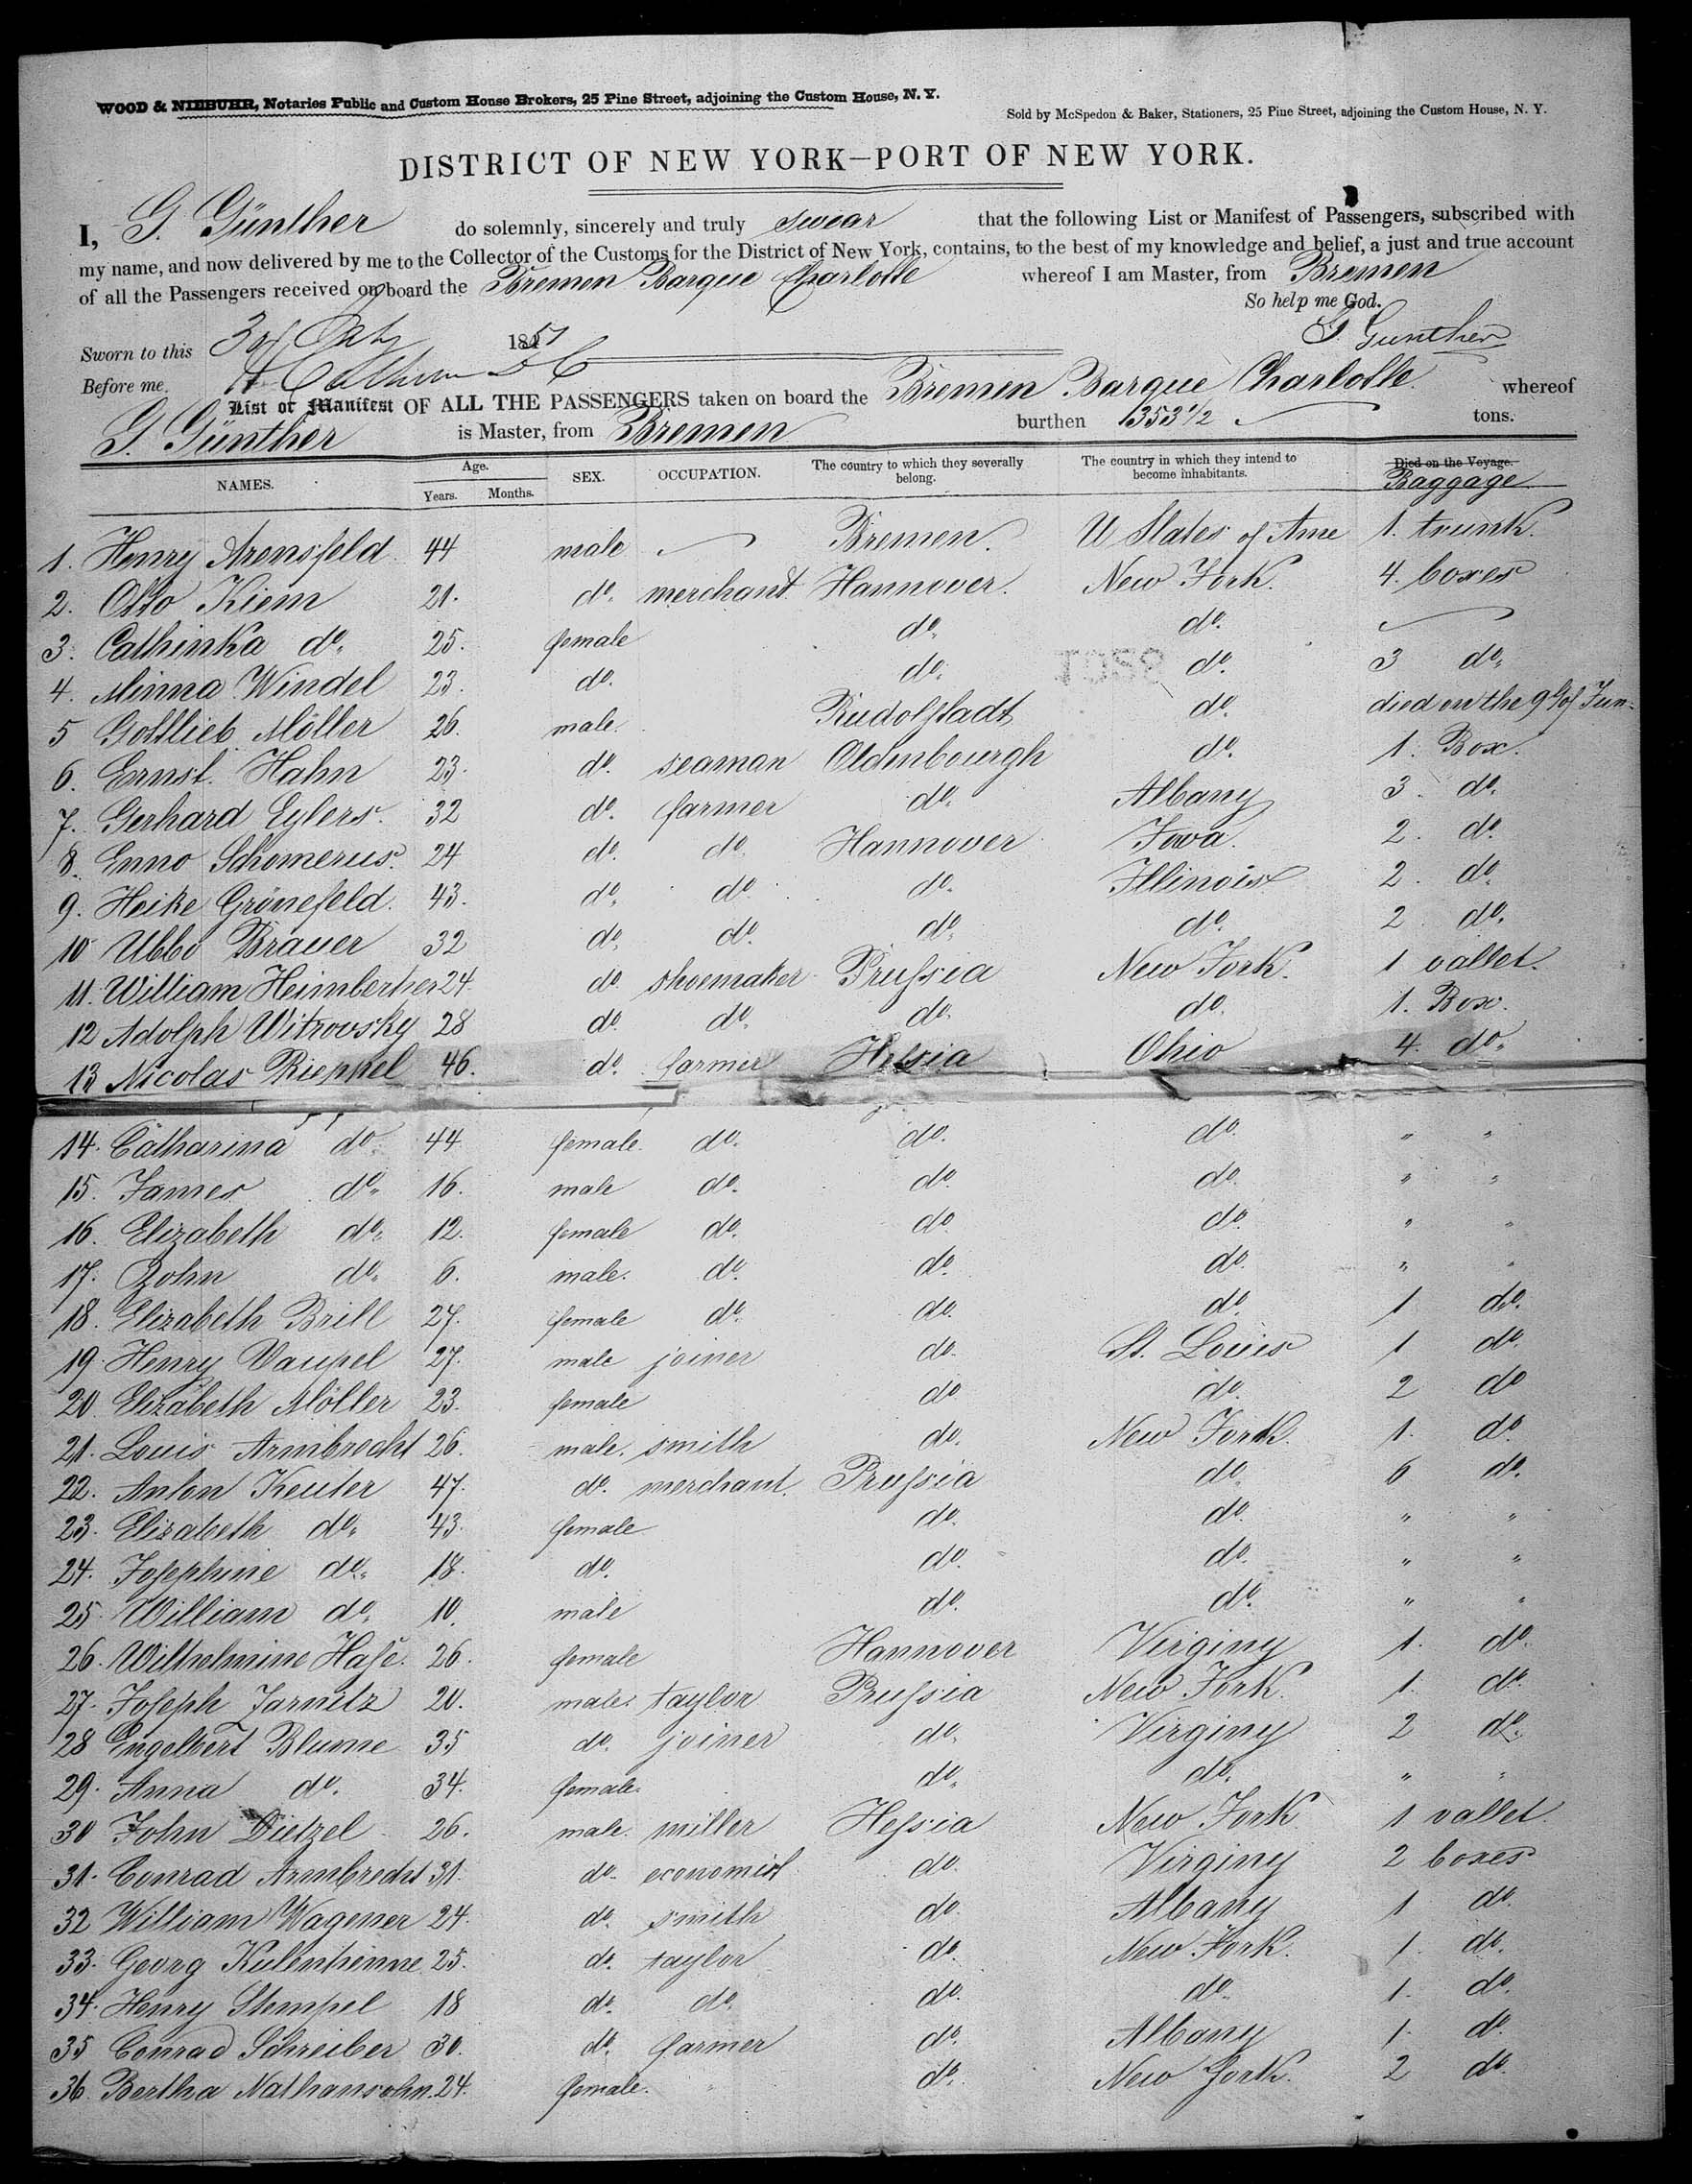 WOOD & NIEBUHR, Notaries Public and Custom House Brokers, 25 Pine Street, adjoining the Custom House, N. Y.
Sold by McSpedon & Baker, Stationers, 25 Pine Street, adjoining the Custom House, N. Y.
DISTRICT OF NEW YORK—PORT OF NEW YORK.
I, G. Günther do solemnly, sincerely and truly swear that the following List or Manifest of Passengers, subscribed with
my name, and now delivered by me to the Collector of the Customs for the District of New York, contains, to the best of my knowledge and belief, a just and true account
of all the Passengers received on board the Bremen Barque Charlotte whereof I am Master, from Bremen
So help me God.
Sworn to this 3 of 1851 G Gunther
Before me.
List or Manifest OF ALL THE PASSENGERS taken on board the Bremen Barque Charlotte whereof
G. Günther is Master, from Bremen burthen 353 1/2 tons.
NAMES. Age. Years. Months. SEX. OCCUPATION. The country to which they severally belong. The country in which they intend to become inhabitants. Died on the Voyage. Baggage
1. Henry Arensfeld 44 male Bremen. U States of Ame 1. trunk.
2. Otto Kiem 21. do. merchant Hannover. New York. 4. boxes
3. Cathinka do. 25. female do. do.
4. Minna Windel 23. do. do. do. 3 do.
5 Gottlieb Möller 26. male. Rudolstadt do. died on the 9 of Jun.
6. Ernst. Hahn 23. do. seaman Oldenbourgh do. 1. Box.
7. Gerhard Eylers. 32 do. farmer do. Albany 3. do.
8. Enno Schomerus. 24 do. do. Hannover Iowa. 2. do.
9. Heike Grönefeld. 43. do. do. do. Illinois 2. do.
10 Ubbo Brauer 32 do. do. do. do. 2 do.
11. William Heimberher 24 do. shoemaker Prussia New York. 1 vallet.
12 Adolph Witrovsky 28 do. do. do. do. 1. Box.
13 Nicolas Rieppel 46. do. farmer Hessia Ohio 4. do.
14. Catharina do. 44 female. do. do. do. " "
15. James do. 16. male do. do. do. " "
16. Elizabeth do. 12. female do. do. do. " "
17. John do. 6. male. do. do. do. " "
18. Elizabeth Brill 27. female do. do. do. 1 do.
19. Henry Vaupel 27. male joiner do. St. Louis 1 do.
20. Elizabeth Möller 23. female do. do. 2 do
21. Louis Armbrecht 26. male. smith do. New York. 1. do.
22. Anton Keuter 47. do. merchant. Prussia do. 6 do.
23. Elizabeth do. 43. female do. do. " "
24. Josephine do. 18. do. do. do. " "
25. William do. 10. male do. do. " "
26. Wilhelmine Hase. 26. female Hannover Virginy 1. do.
27. Joseph Jarnitz 20. male. taylor Prussia New York. 1. do.
28 Engelbert Blume 35 do. joiner do. Virginy 2 do.
29. Anna do. 34. female. do. do. " "
30 John Dietzel 26. male. miller Hessia New York 1 vallet.
31. Conrad Armbrecht 31. do. economist do. Virginy 2 boxes
32 William Wagener 24. do. smith do. Albany 1 do.
33. Georg Kulenkenne 25. do. taylor do. New York. 1. do.
34. Henry Stempel 18 do. do. do. do. 1. do.
35 Conrad Schreiber 30. do. farmer do. Albany 1. do.
36. Bertha Nathansohn. 24. female. do. New York. 2 do.